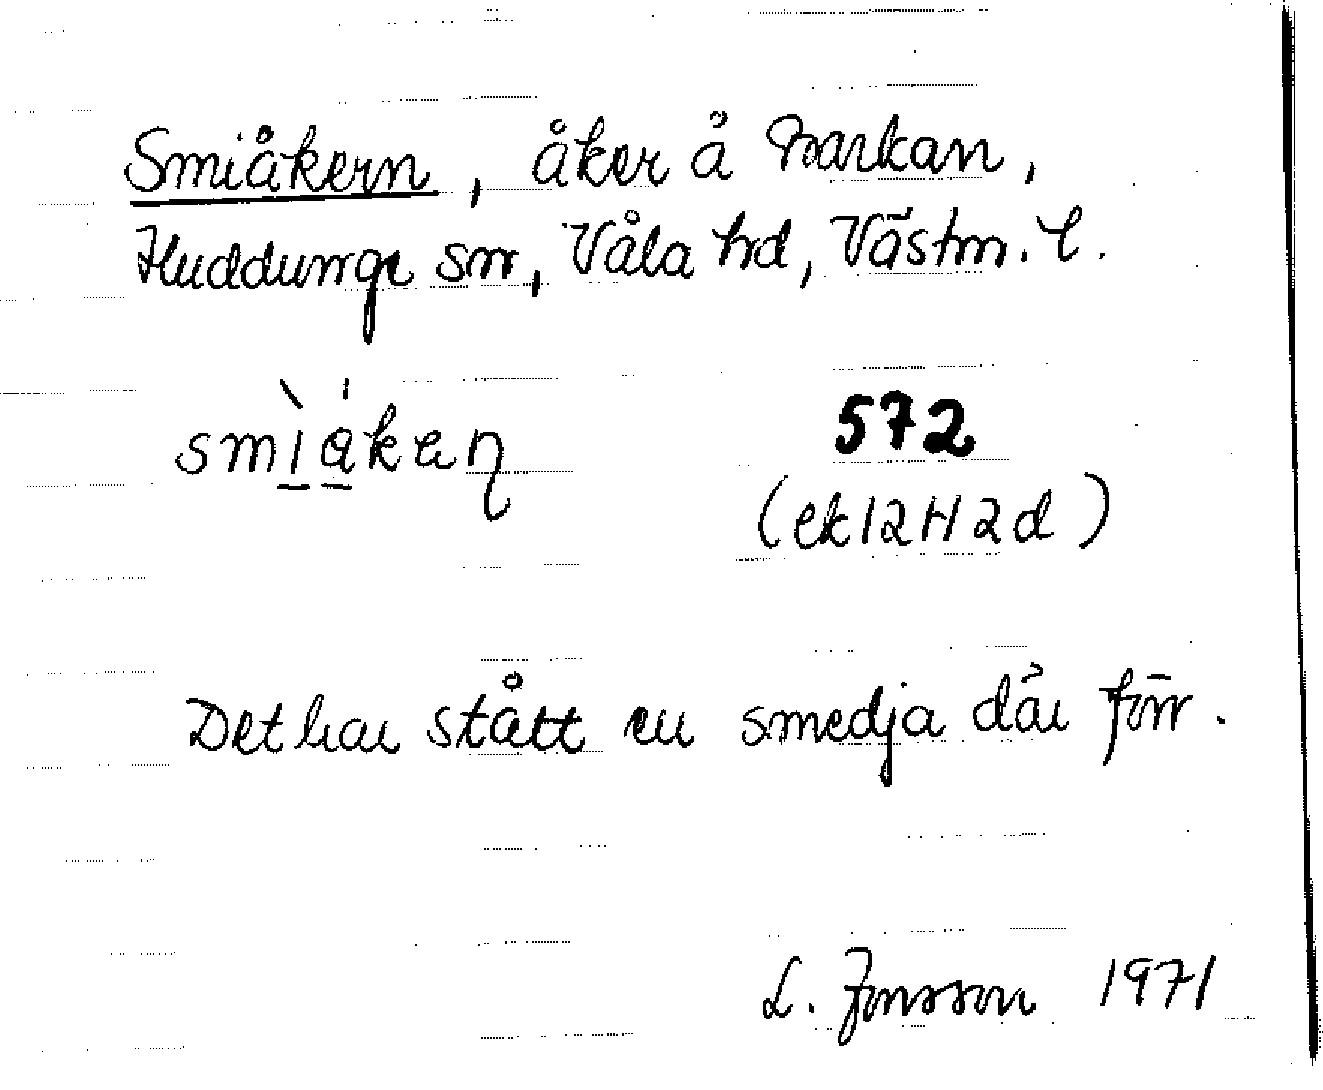 Smiåkern, åker å Harkan,
Huddunge sn, Våla hd, Västm. l.
572
(ek12H2d)
Det har stått en smedja där förr.
L. Jonsson 1971